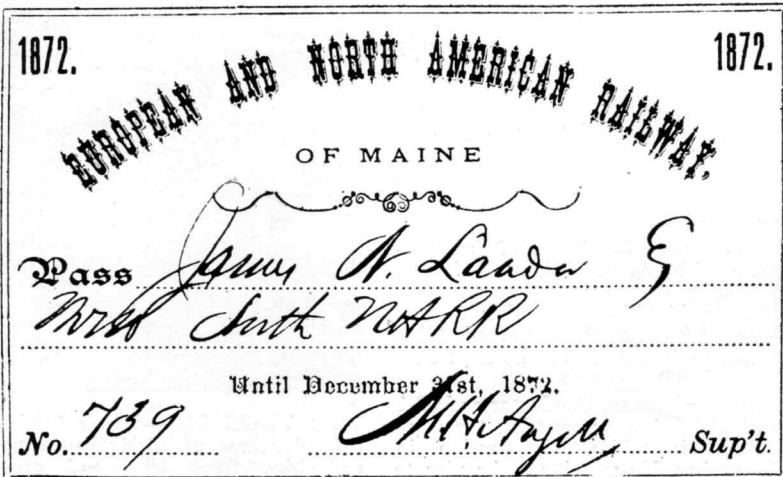 1872. 1872.
EUROPEAN AND NORTH AMERICAN RAILWAY,
OF MAINE
Pass James N. Lauder
NHRR
Until December 31st, 1872.
No. 739 Sup't.